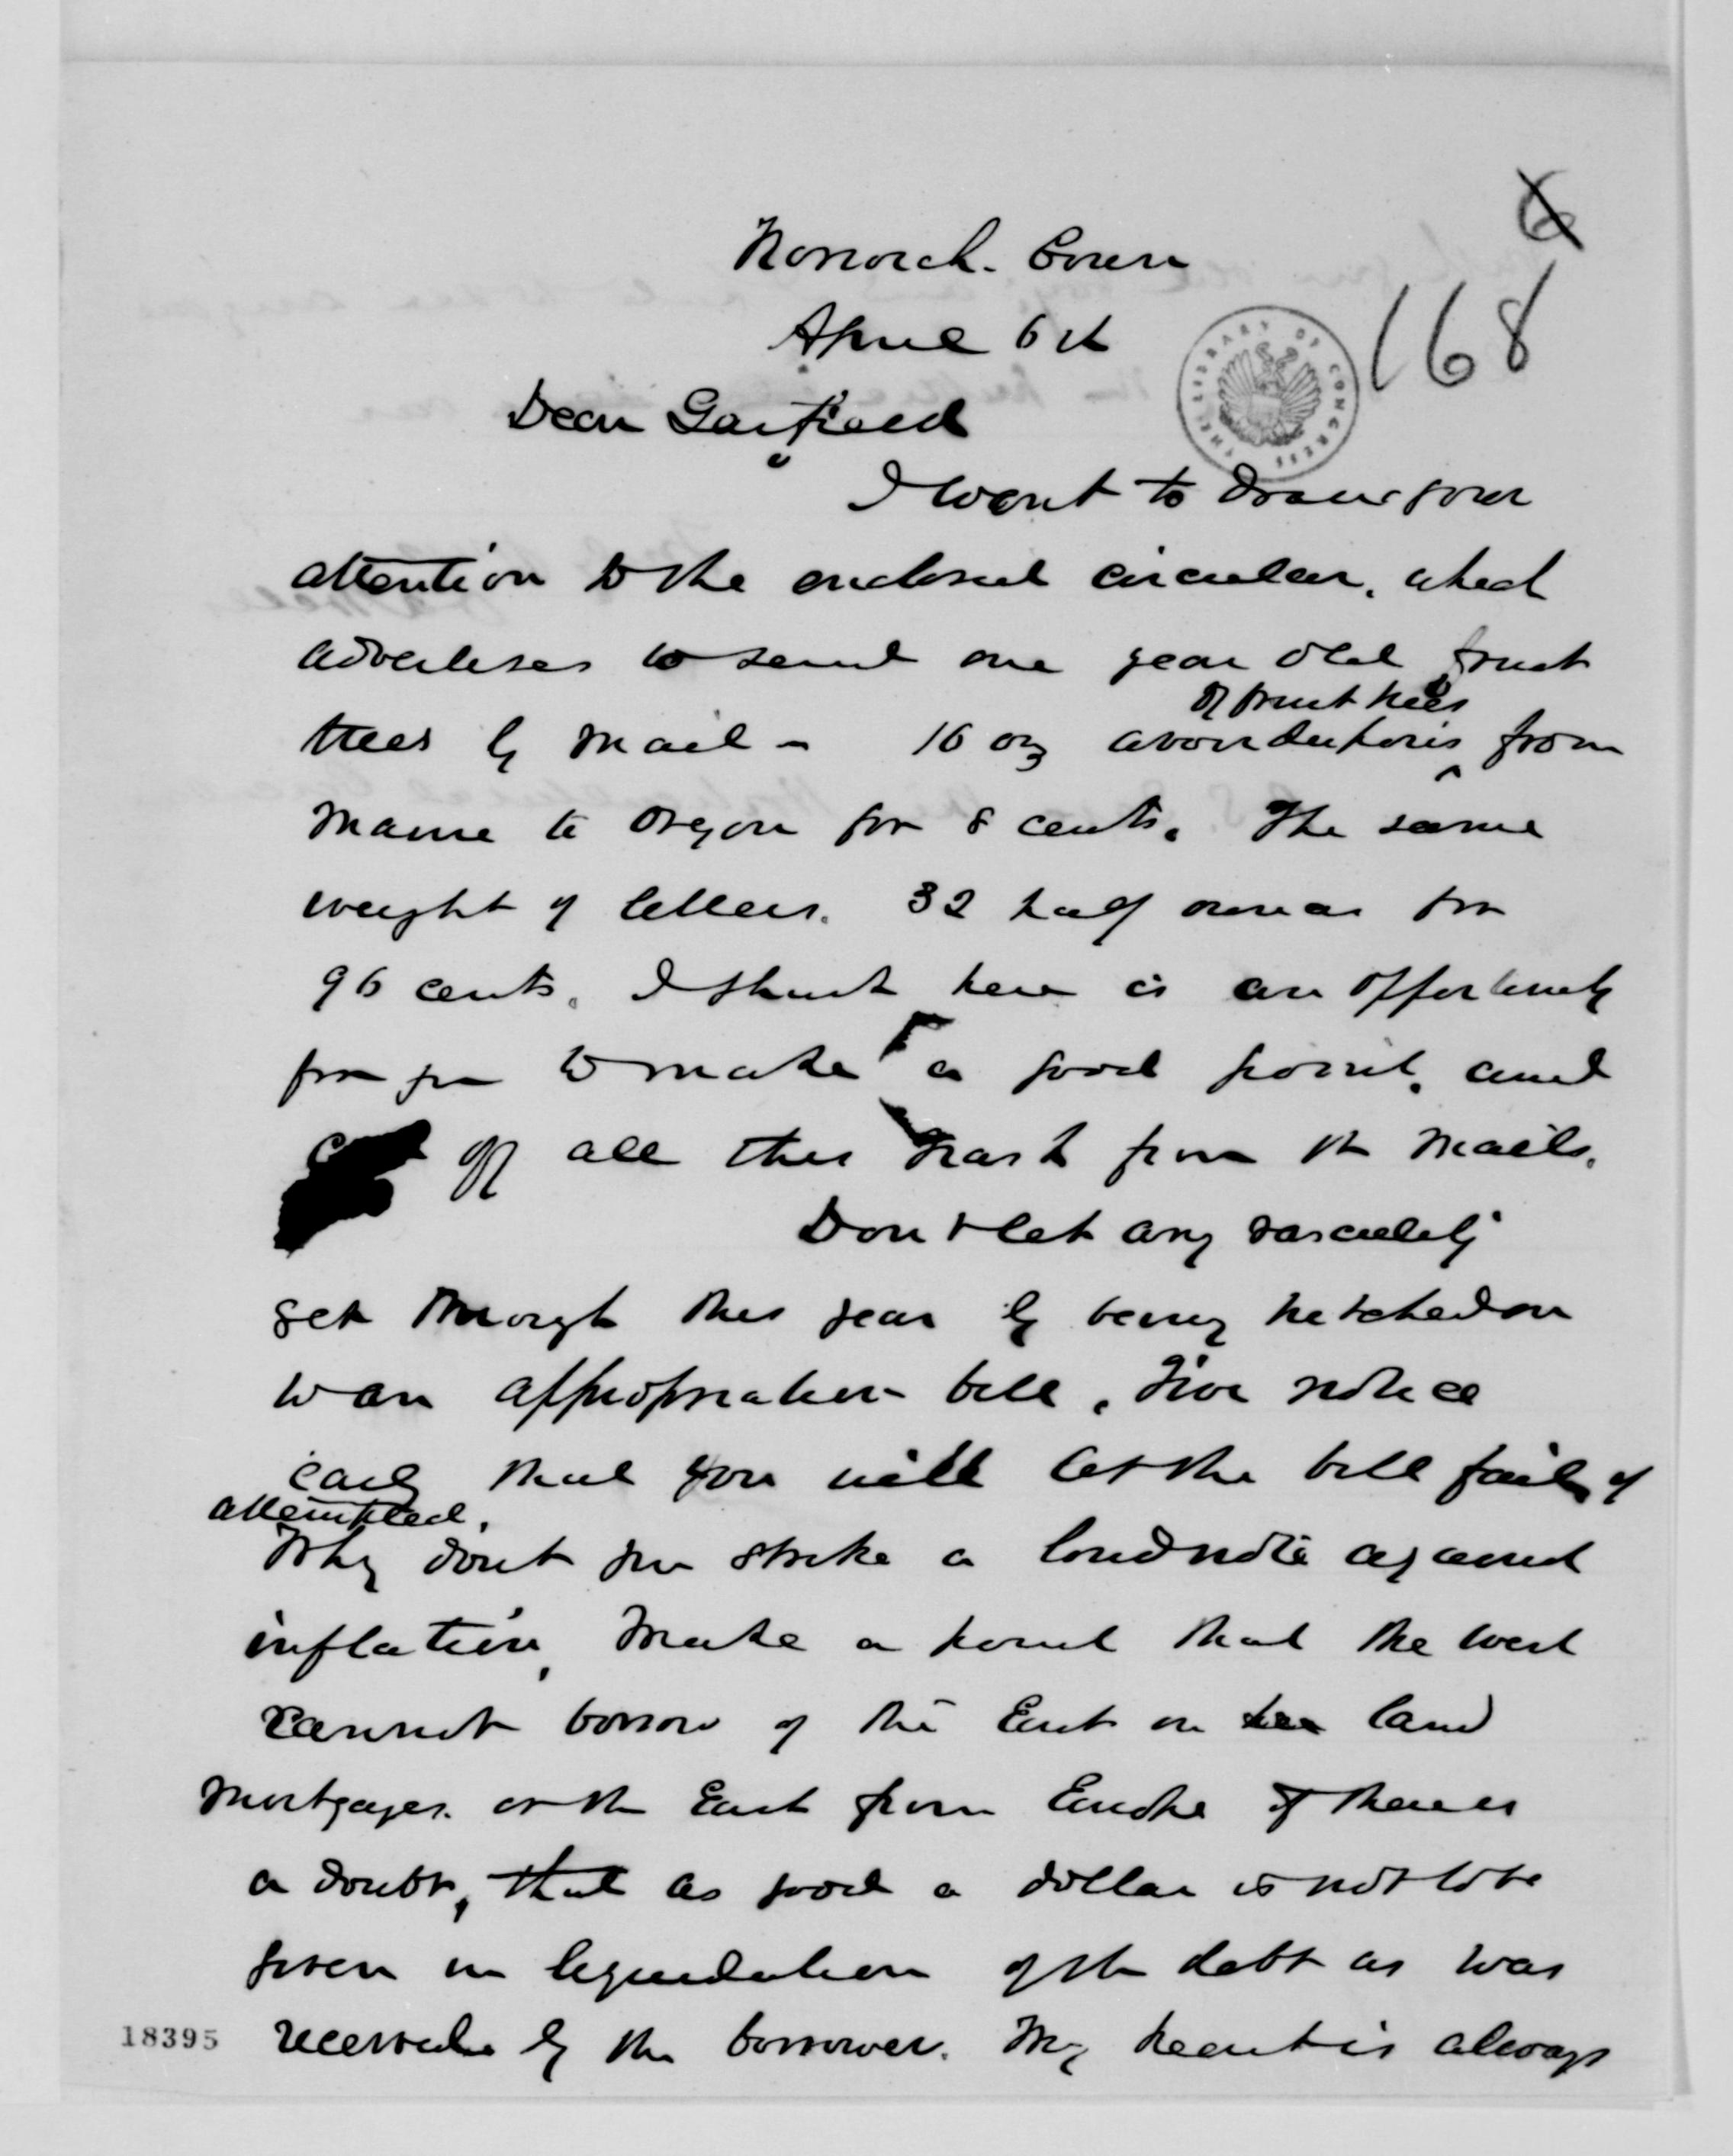 Norwich. Conn
April 6th
168
THE LIBRARY OF CONGRESS
Dear Garfield
I want to draw your
attention to the enclosed circular. which
advertises to send one year old fruit
trees by mail - 16 oz avoirdupois of fruit trees from
Maine to Oregon for 8 cents. The same
weight of letters. 32 half ounces for
96 cents. I think here is an opportunity
for you to make a good point. and
off all this trash from the mails.
Dont let any rascality
get through this year by being hitched on
to an appropriation bill. Give notice
early that you will let the bill fail if
attempted.
Why dont you strike a loud note against
inflation, Make a point that the West
cannot borrow of the East on land
mortgages. or the East from Europe if there is
a doubt, that as good a dollar is not to be
given in liquidation of the debt as was
received by the borrower. My heart is always
18395